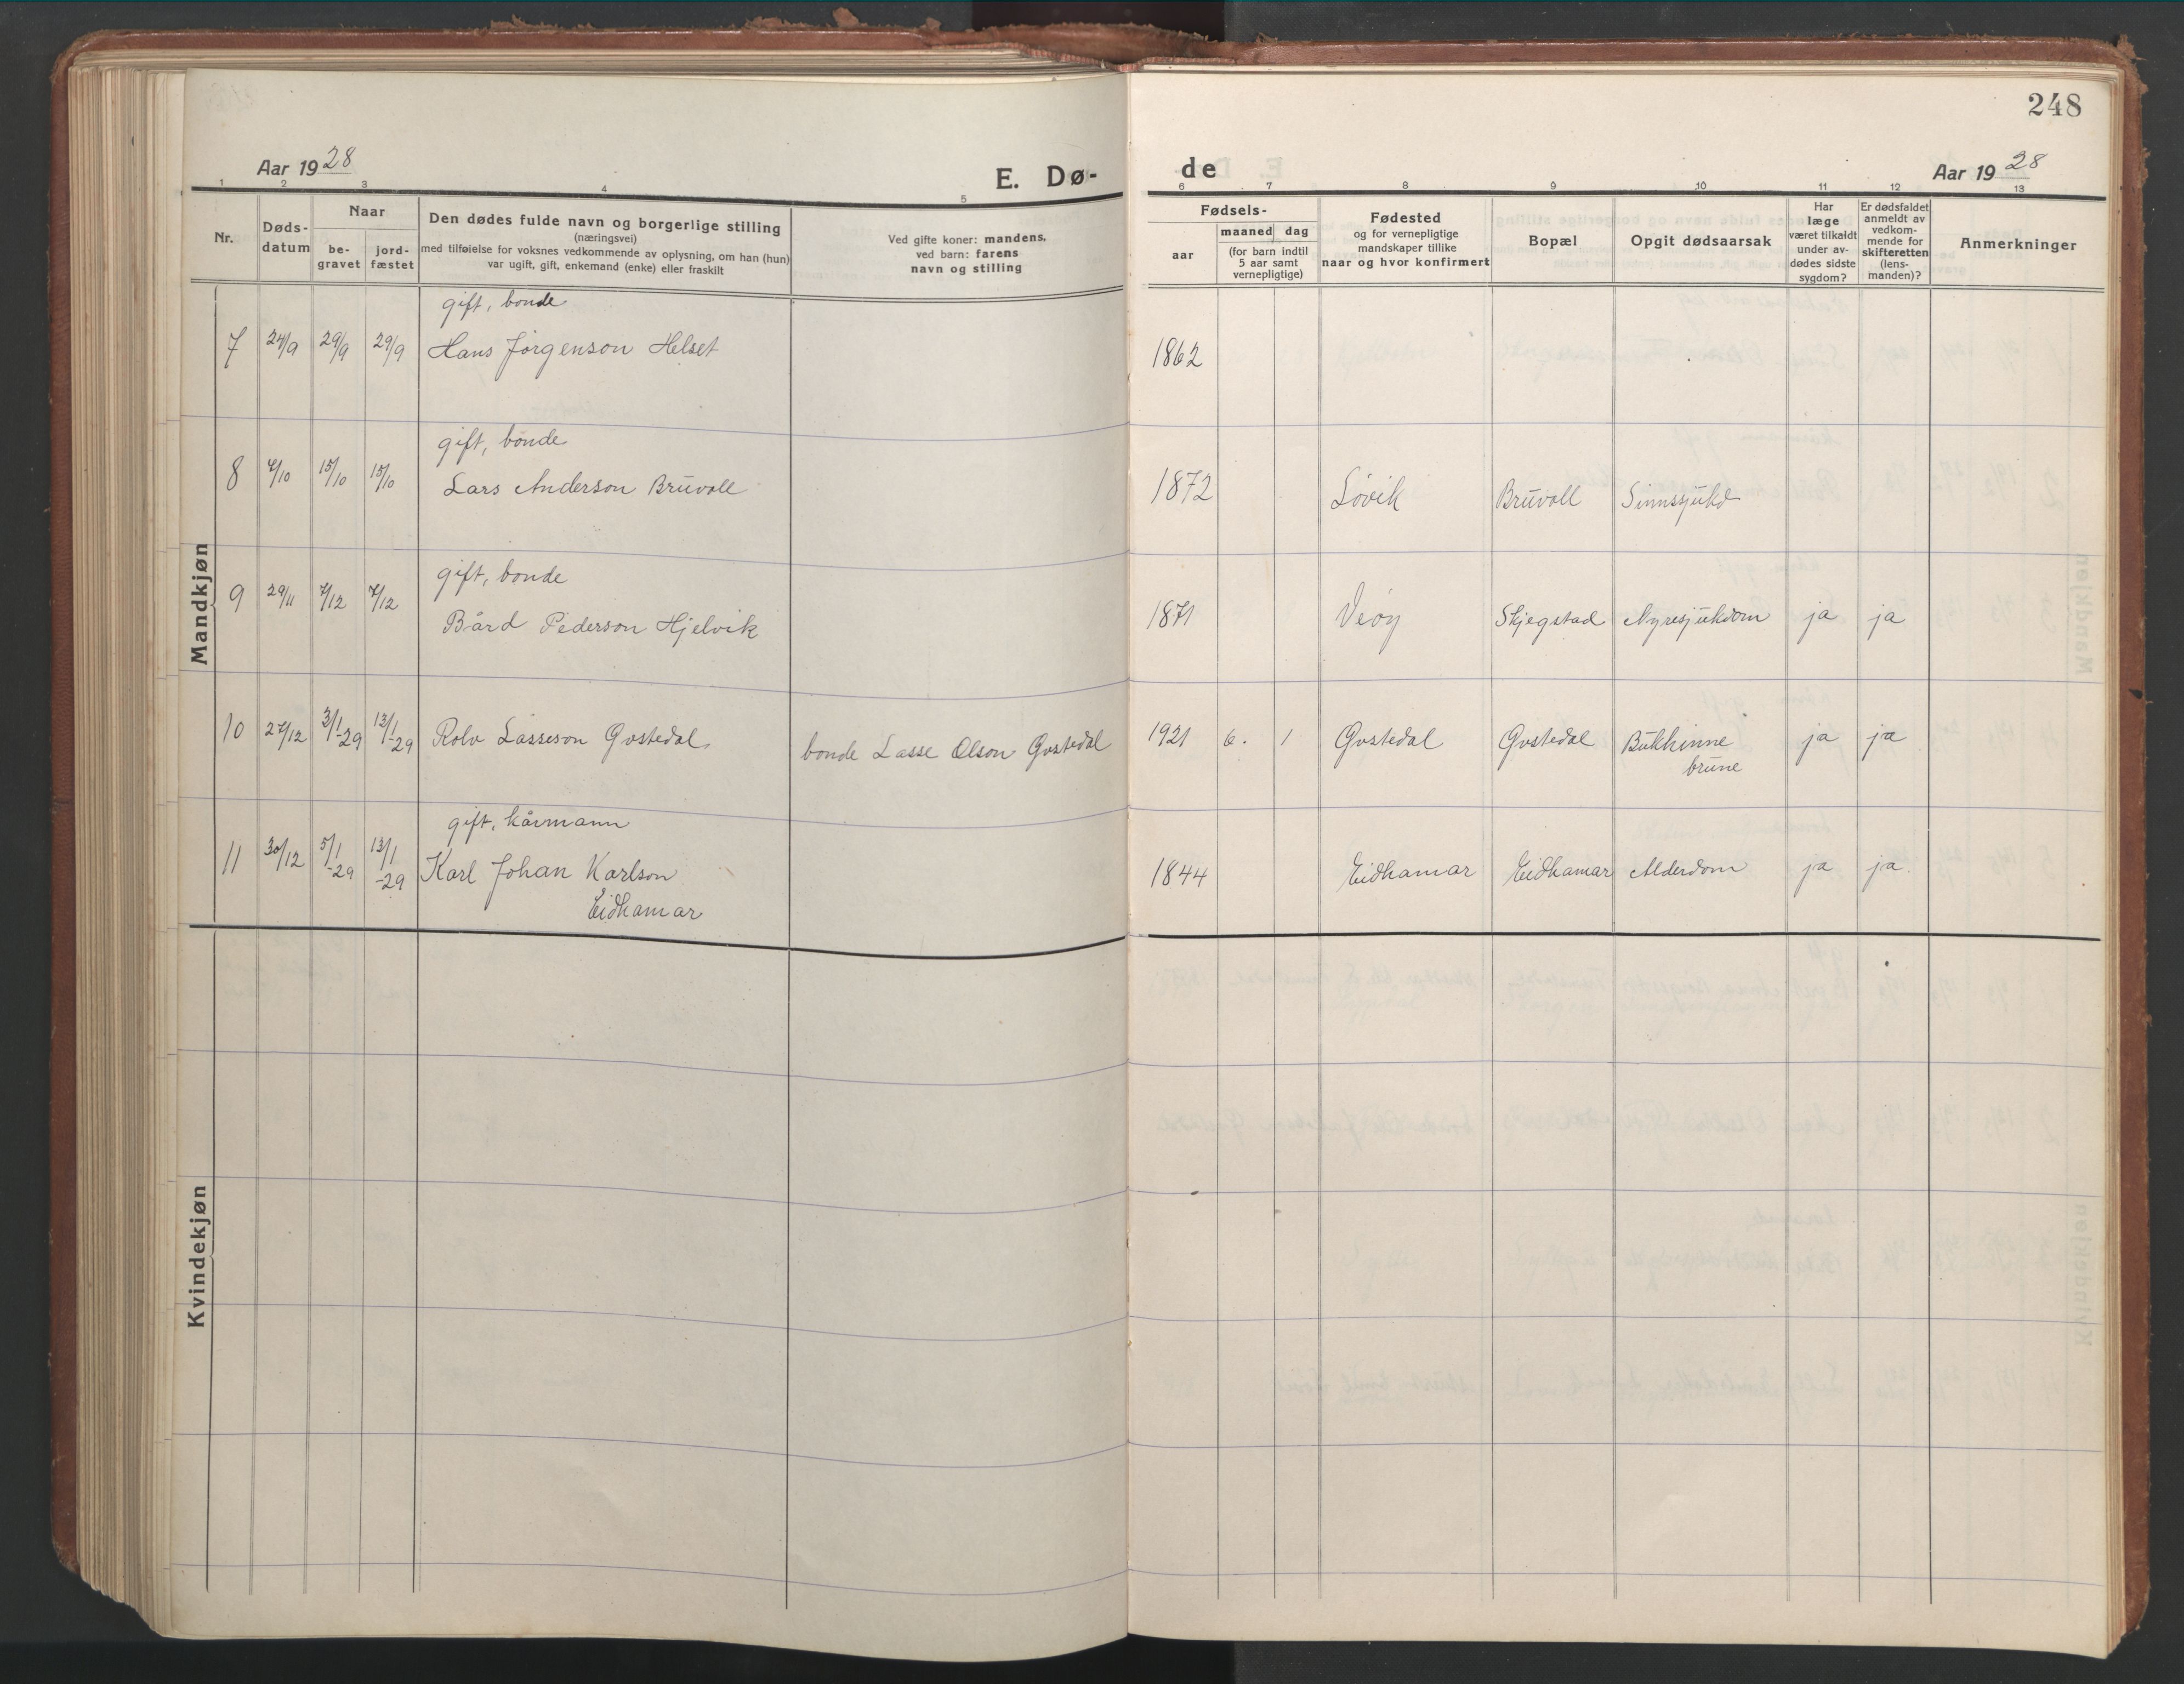 248
Aar 1928
E. Dø-
de
Aar 1928
1 2 3 4 5 6 7 8 9 10 11 12 13
Nr.
Døds-
datum
Naar
be-
gravet
jord-
fæstet
Den dødes fulde navn og borgerlige stilling
(næringsvei)
med tilføielse for voksnes vedkommende av oplysning, om han (hun)
var ugift, gift, enkemand (enke) eller fraskilt
Ved gifte koner: mandens,
ved barn: farens
navn og stilling
Fødsels-
aar
maaned dag
(for barn indtil
5 aar samt
vernepligtige)
Fødested
og for vernepligtige
mandskaper tillike
naar og hvor konfirmert
Bopæl
Opgit dødsaarsak
Har
læge
været tilkaldt
under av-
dødes sidste
sygdom?
Er dødsfaldet
anmeldt av
vedkom-
mende for
skifteretten
(lens-
manden)?
Anmerkninger
Mandkjøn
gift, bonde
7 24/9 29/9 29/9 Hans Jørgenson Helset 1862
gift, bonde
8 7/10 15/10 15/10 Lars Anderson Bruvoll 1872 Løvik Bruvoll Sinnssjukd
gift, bonde
9 29/11 7/12 7/12 Bård Pederson Hjelvik 1871 Veøy Skjegstad Nyresjukdom ja ja
10 27/12 3/1-29 13/1-29 Rolv Lasseson Gostedal bonde Lasse Olson Gostedal 1921 6. 1 Gostedal Gostedal Bukhinne
brune
ja ja
gift, kårmann
11 30/12 5/1-29 13/1-29 Karl Johan Karlson
Eidhamar
1844 Eidhamar Eidhamar Alderdom ja ja
Kvindekjøn